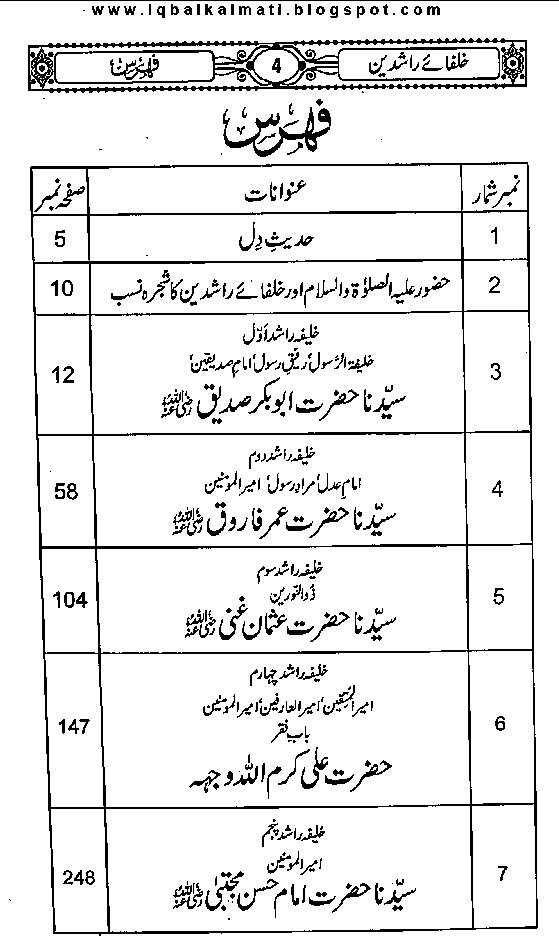 www.iqbalkalmati.blogspot.com
خلفائے راشدین 4 فہرس
فہرس
نمبر شمار عنوانات صفحہ نمبر
1 حدیثِ دِل 5
2 حضور علیہ الصلوٰۃ والسلام اور خلفائے راشدین کا شجرہ نسب 10
خلیفہ راشد اوّل
خلیفۃ الرّسول' رفیقِ رسول' امامِ صدیقین'
3 سیّدنا حضرت ابوبکر صدیق رضی اللہ عنہ 12
خلیفہ راشد دوم
امامِ عدل' مرادِ رسول' امیر المومنین
4 سیّدنا حضرت عمر فاروق رضی اللہ عنہ 58
خلیفہ راشد سوم
ذُوالنورین
5 سیّدنا حضرت عثمان غنی رضی اللہ عنہ 104
خلیفہ راشد چہارم
امیر المتقین' امیر العارفین' امیر المومنین
بابِ فقر
6 حضرت علی کرم اللہ وجہہ 147
خلیفہ راشد پنجم
امیر المومنین
7 سیّدنا حضرت امام حسن مجتبیٰ رضی اللہ عنہ 248